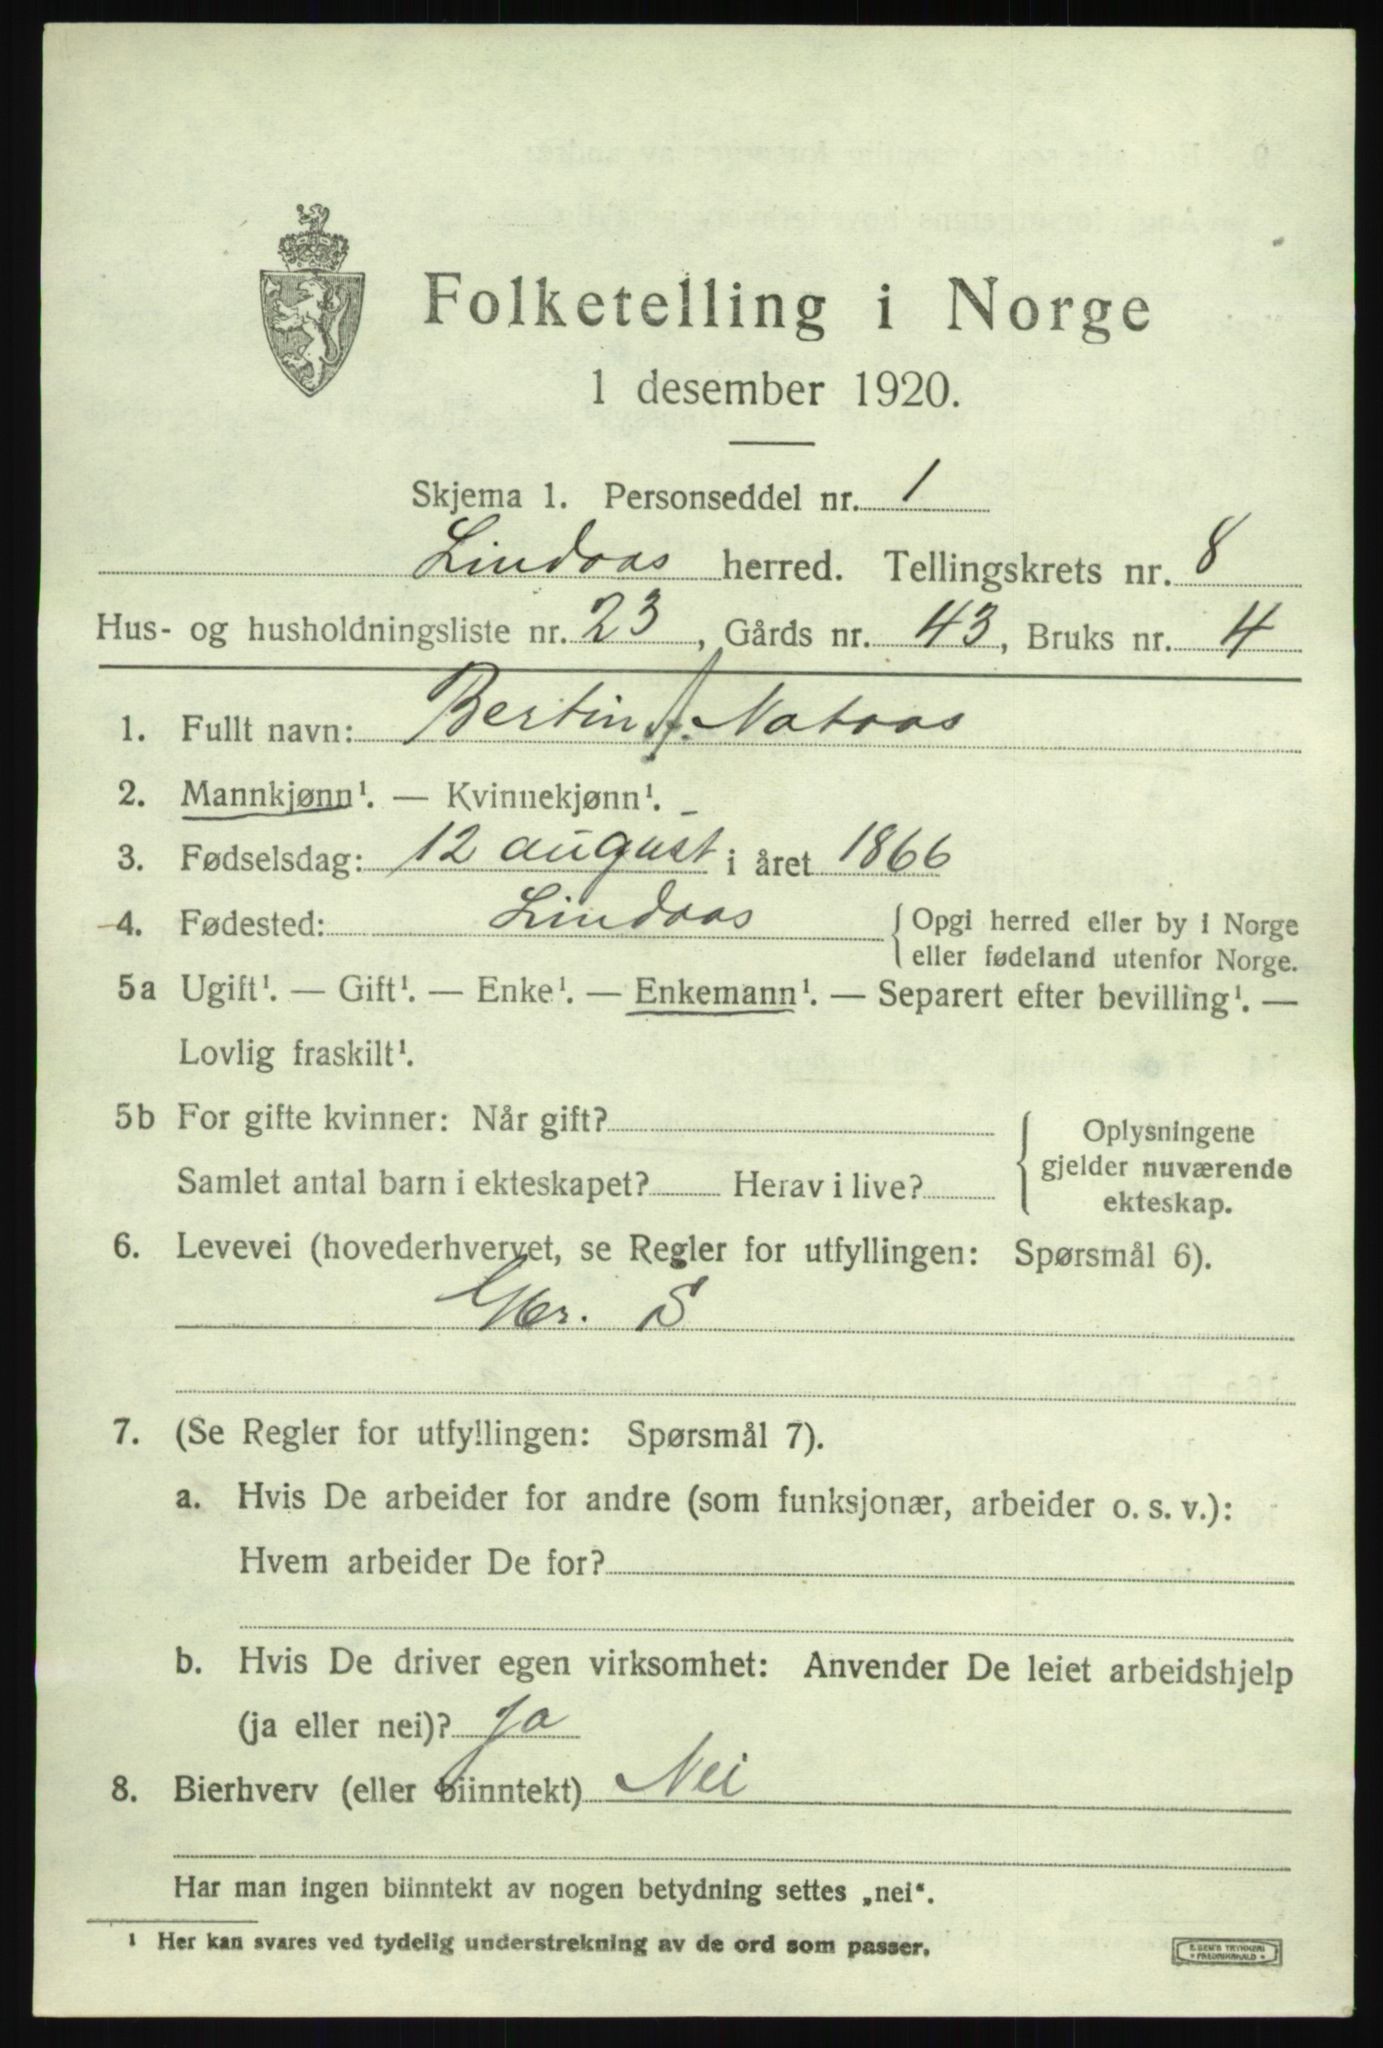 Folketelling i Norge
1 desember 1920.
Skjema 1. Personseddel nr. 1
Lindaas herred. Tellingskrets nr. 8
Hus- og husholdningsliste nr. 23, Gårds nr. 43, Bruks nr. 4
1. Fullt navn: Bertin A. Nataas
2. Mannkjønn¹. — Kvinnekjønn¹.
3. Fødselsdag: 12 august i året 1866
4. Fødested: Lindaas { Opgi herred eller by i Norge
eller fødeland utenfor Norge.
5a Ugift¹. — Gift¹. — Enke¹. — Enkemann¹. — Separert efter bevilling¹. —
Lovlig fraskilt¹.
5b For gifte kvinner: Når gift?
Samlet antal barn i ekteskapet? Herav i live?
Oplysningene
gjelder nuværende
ekteskap.
6. Levevei (hovederhvervet, se Regler for utfyllingen: Spørsmål 6).
Gbr. S
7. (Se Regler for utfyllingen: Spørsmål 7).
a. Hvis De arbeider for andre (som funksjonær, arbeider o. s. v.):
Hvem arbeider De for?
b. Hvis De driver egen virksomhet: Anvender De leiet arbeidshjelp
(ja eller nei)? Ja
8. Bierhverv (eller biinntekt) Nei
Har man ingen biinntekt av nogen betydning settes „nei“.
¹ Her kan svares ved tydelig understrekning av de ord som passer.
E. SEM'S TRYKKERI
FREDRIKSHALD